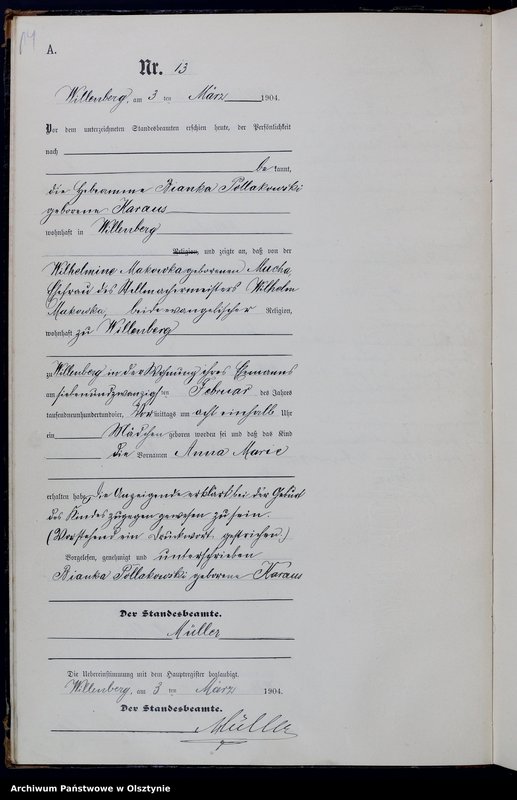 14
A.
Nr. 13
Willenberg, am 3 ten März 1904.
Vor dem unterzeichneten Standesbeamten erschien heute, der Persönlichkeit
nach
be kannt,
die Hebeamme Bianka Pollakowski
geborene Karaus
wohnhaft in Willenberg
Religion, und zeigte an, daß von der
Wilhelmine Makowka geborenen Mucha,
Ehefrau des Stellmachermeisters Wilhelm
Makowka, beide evangelischer Religion,
wohnhaft zu Willenberg
zu Willenberg in der Wohnung ihres Ehemanns
am siebenundzwanzig ten Februar des Jahres
tausendneunhundertundvier, Vormittags um acht einhalb Uhr
ein Mädchen geboren worden sei und daß das Kind
die Vornamen Anna Marie
erhalten habe, Die Anzeigende erklärt bei der Geburt
des Kindes zugegen gewesen zu sein.
(Vorstehend ein Druckwort gestrichen.)
Vorgelesen, genehmigt und unterschrieben
Bianka Pollakowski geborene Karaus
Der Standesbeamte.
Müller
Die Uebereinstimmung mit dem Hauptregister beglaubigt.
Willenberg, am 3 ten März 1904.
Der Standesbeamte.
Müller
Archiwum Państwowe w Olsztynie